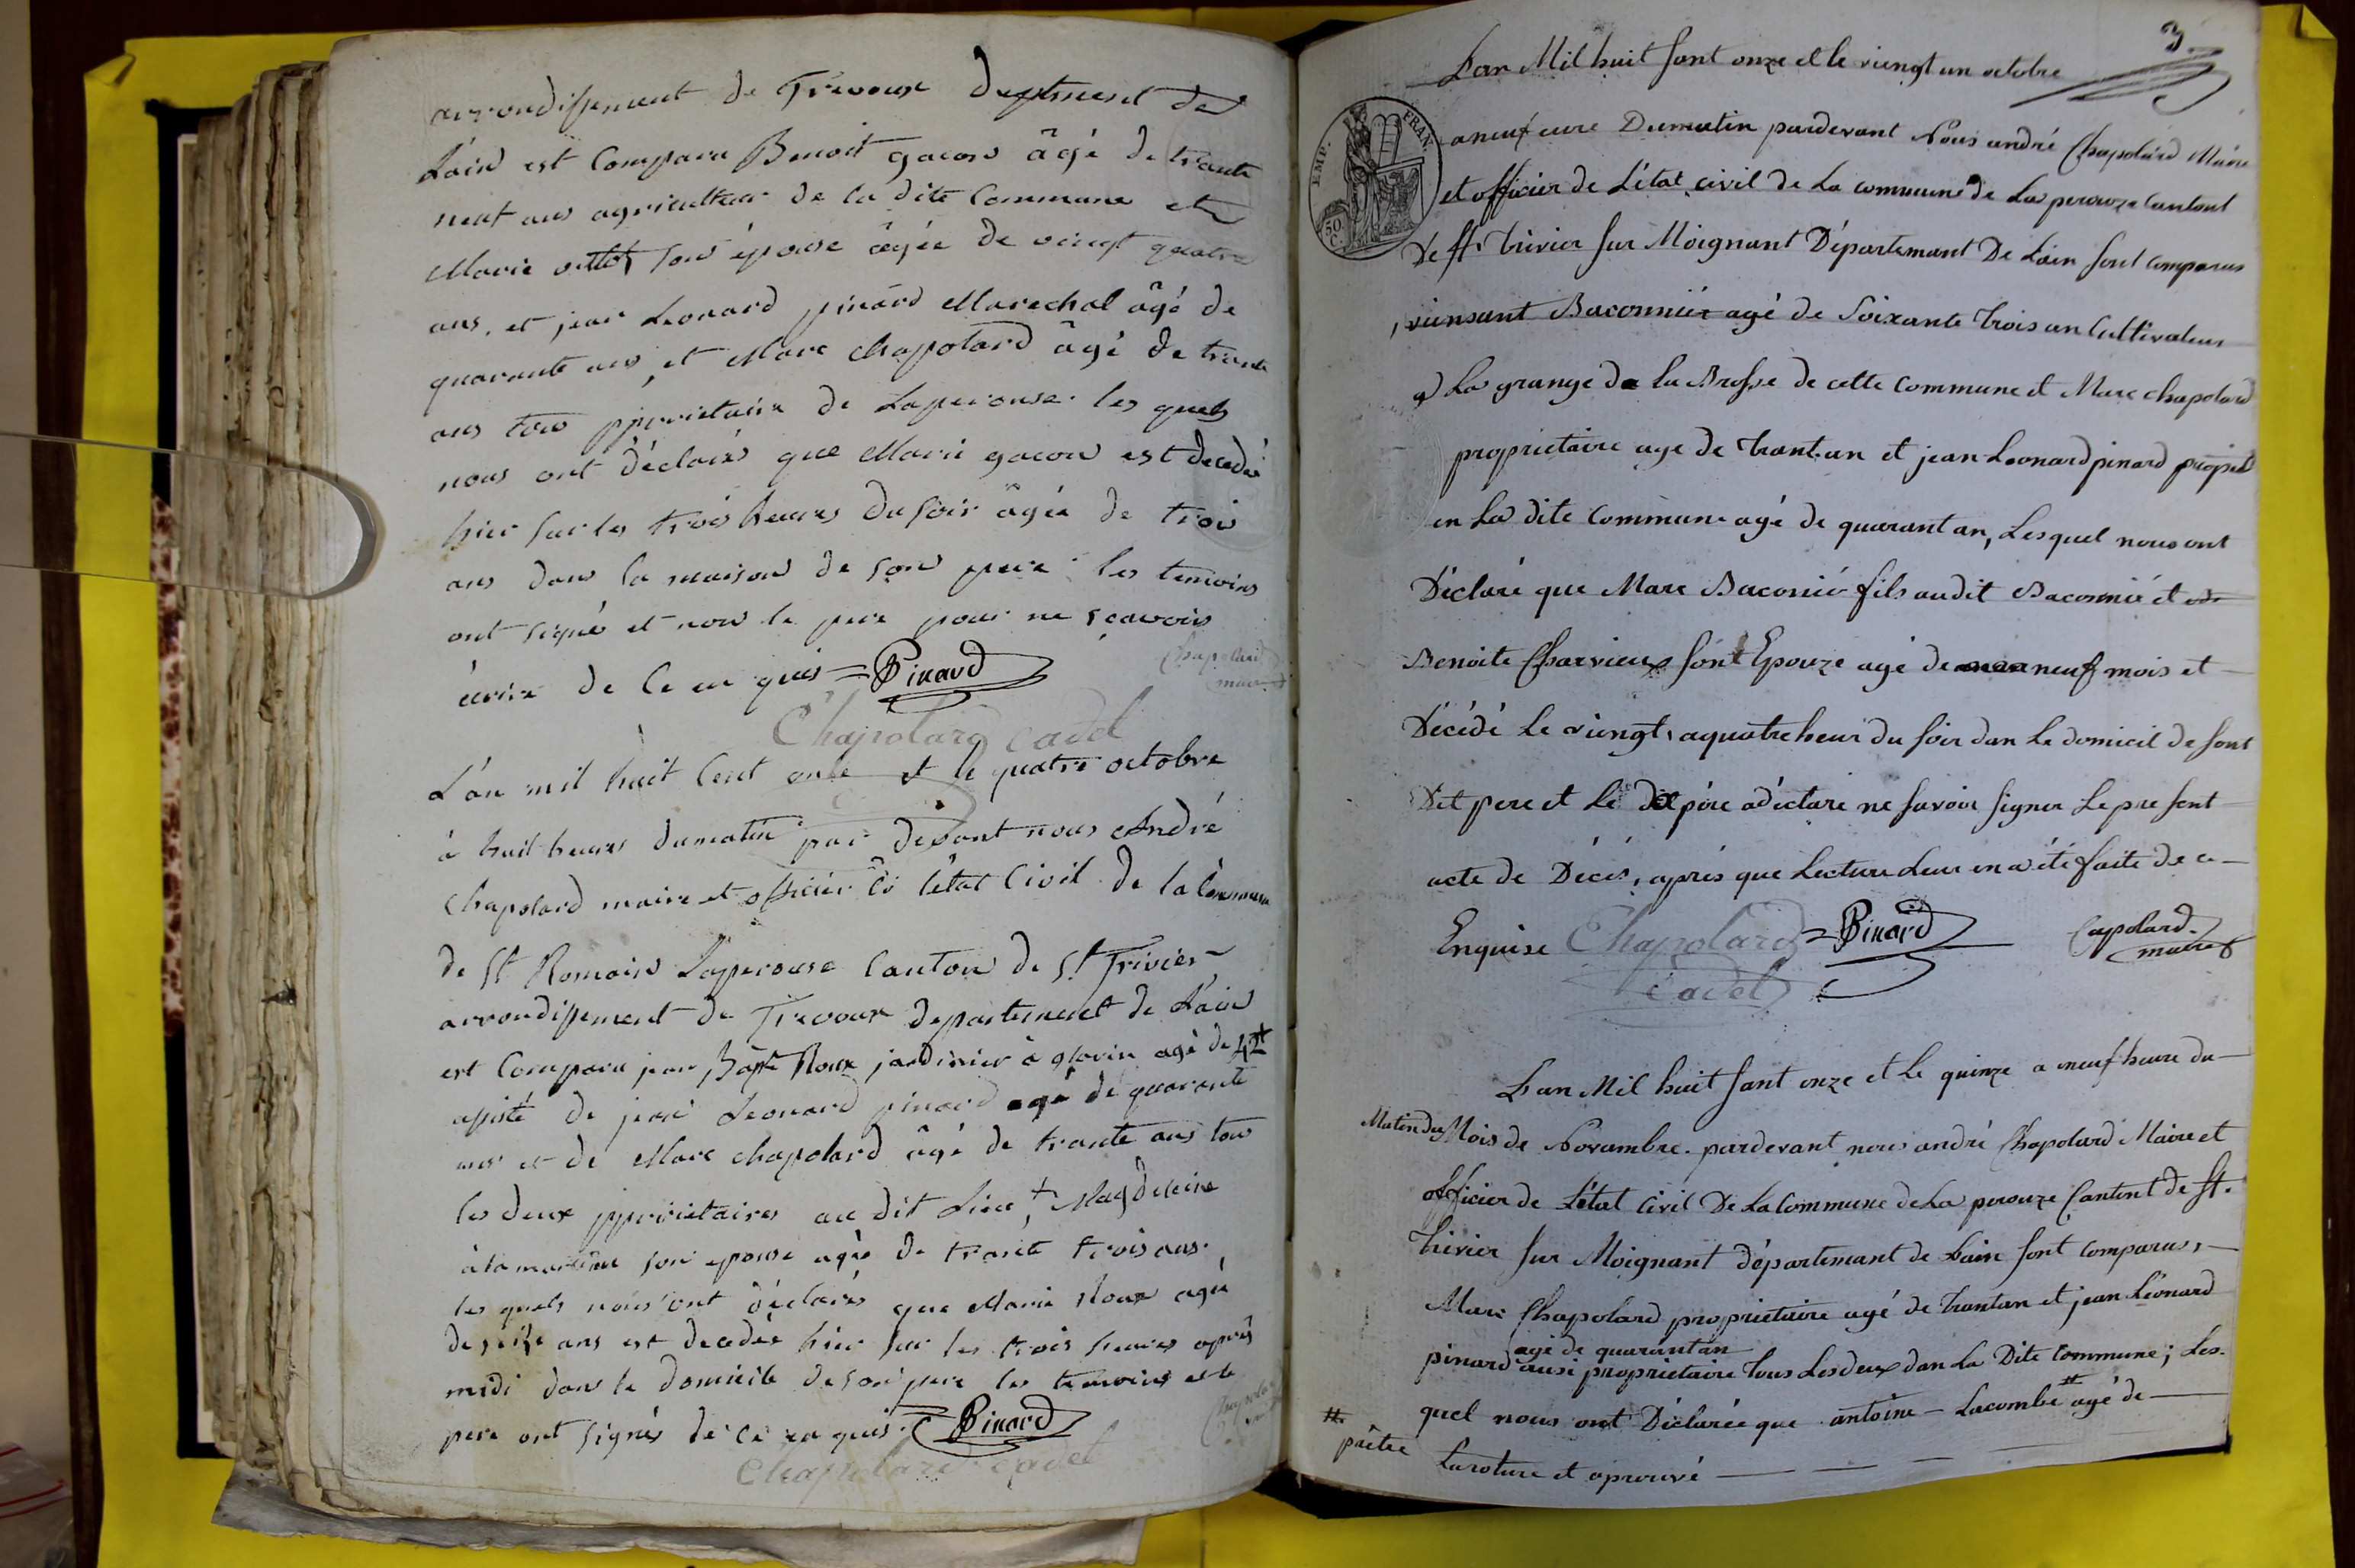 arrondissement de Trevoux Deptment de
L'ain est Comparu Benoit gacon âgé de trante
neuf ans agriculteur de la dite Commune et
Marie son épouse âgée de vingt quatre
ans, et jean Leonard pinard Marechal âgé de
quarante ans, et Marc chapolard âgé de trante
ans tous pproprietaire de Laperouse. les quels
nous ont déclarés que Marie gacon est decedée
hier sur les trois heures du soir âgée de trois
ans dans la maison de son pere les temoins
ont signé et non le pere pour ne sçavoir
écrire de ce en quis = Pinard
Chapolard maire
Chapolard cadet
L'an mil huit Cent onze et le quatre octobre
à huit heures du matin par devant nous André
Chapolard maire et officier de l'état Civil de la Commune
de St Romain Laperouse Canton de St Trivier
arrondissement de Trevoux departement de L'ain
est Comparu jean Bapte Roux jardinier à glavin agé de 42
assisté de jean Leonard pinard agé de quarante
ans et de Marc chapolard âgé de trante ans tous
les deux pproprietaires au dit Lieu, + Magdeleine
son epouse agée de trante trois ans.
les quels nous ont déclarés que Marie Roux agée
de seize ans est decedée hier sur les trois heures après
midi dans le domicile de son pere les temoins et le
pere ont signés de ce en quis. Pinard
Chapolard cadet
3
Lan Mil huit sant onze et le viengt un octobre
EMP. FRAN. 50 C.
a neuf eure Dumatin pardevant Nous andré Chapolard Maire
et officier de L'état civil de La commune de La perouze Cantont
de St trivier sur Moignant Département De Lain sont comparus
viensant Baconnier agé de Soixante trois an Cultivateur
a La grange de la Brosse de cette commune et Marc chapolard
proprietaire age de trant.an et jean Leonard pinard propriet
en La dite commune agé de quarant an, Lesquel nous ont
Déclaré que Marc Baconié fils audit Baconnié et de
Benoite Charvieux sont Epouze agé de neuf mois et
Décédé Le viengt, aquatre heur du soir dan Le domicil de sont
Dit pere et Le dit père adéclare ne savoir signer Le pre sent
acte de Décés, aprés que Lecture Leur en a été faite de ce
Enquise Chapolard = Pinard Capolard
cadet maire
Lan Mil huit sant onze et Le quinze a neuf heure du
Matin du Mois de Novambre. pardevant nous andré Chapolard Maire et
officier de L'état civil De La Commune de La perouze Cantont de St.
trivier sur Moignant département de Lain sont comparus,
Marc Chapolard proprietaire agé de trantan et jean Léonard
agé de quarantan
pinard ausi proprietaire tous Lesdeux dan La Dite Commune; Les
quel nous ont Déclarée que antoine Lacombe # agé de
# prêtre
La roture et aprouvé